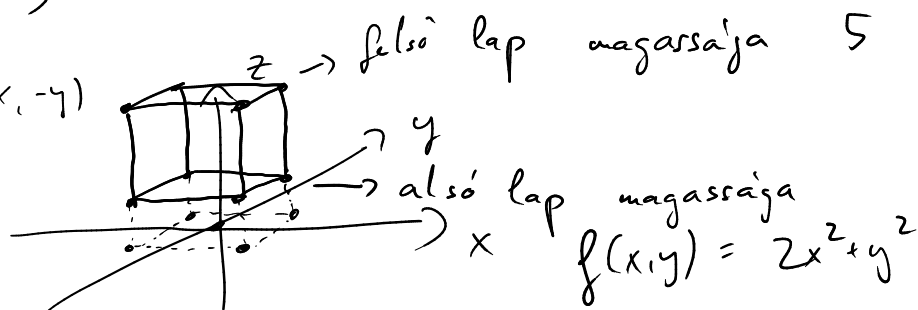 z → felső lap magassága 5
x, -y)
y
→ alsó lap magassága
x
f(x,y) = 2x²+y²